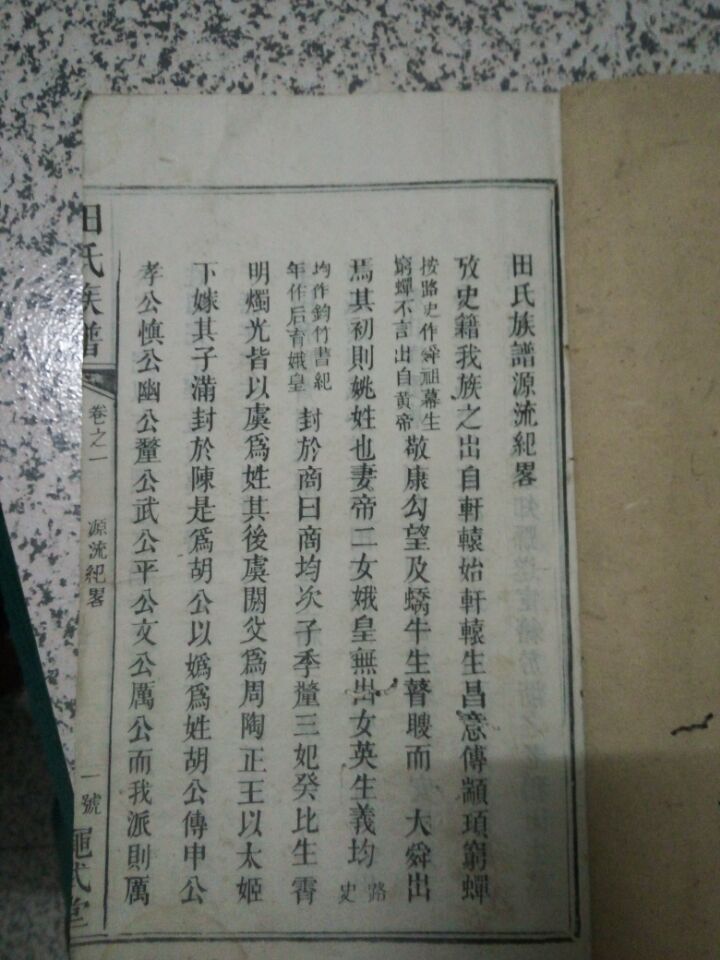 田氏族譜源流紀畧
攷史籍我族之出自軒轅始軒轅生昌意傳顓頊窮蟬
按路史作舜祖幕生
窮蟬不言出自黃帝
敬康勾望及蟜牛生瞽瞍而 大舜出
焉其初則姚姓也妻帝二女娥皇無出女英生義均
路
史
均作鈞竹書紀
年作后育娥皇
封於商曰商均次子季釐三妃癸比生霄
明燭光皆以虞爲姓其後虞閼父爲周陶正王以太姬
下嫁其子滿封於陳是爲胡公以嬀爲姓胡公傳申公
孝公慎公幽公釐公武公平公文公厲公而我派則厲
田氏族譜
卷之一
源流紀畧
一號
繩式堂